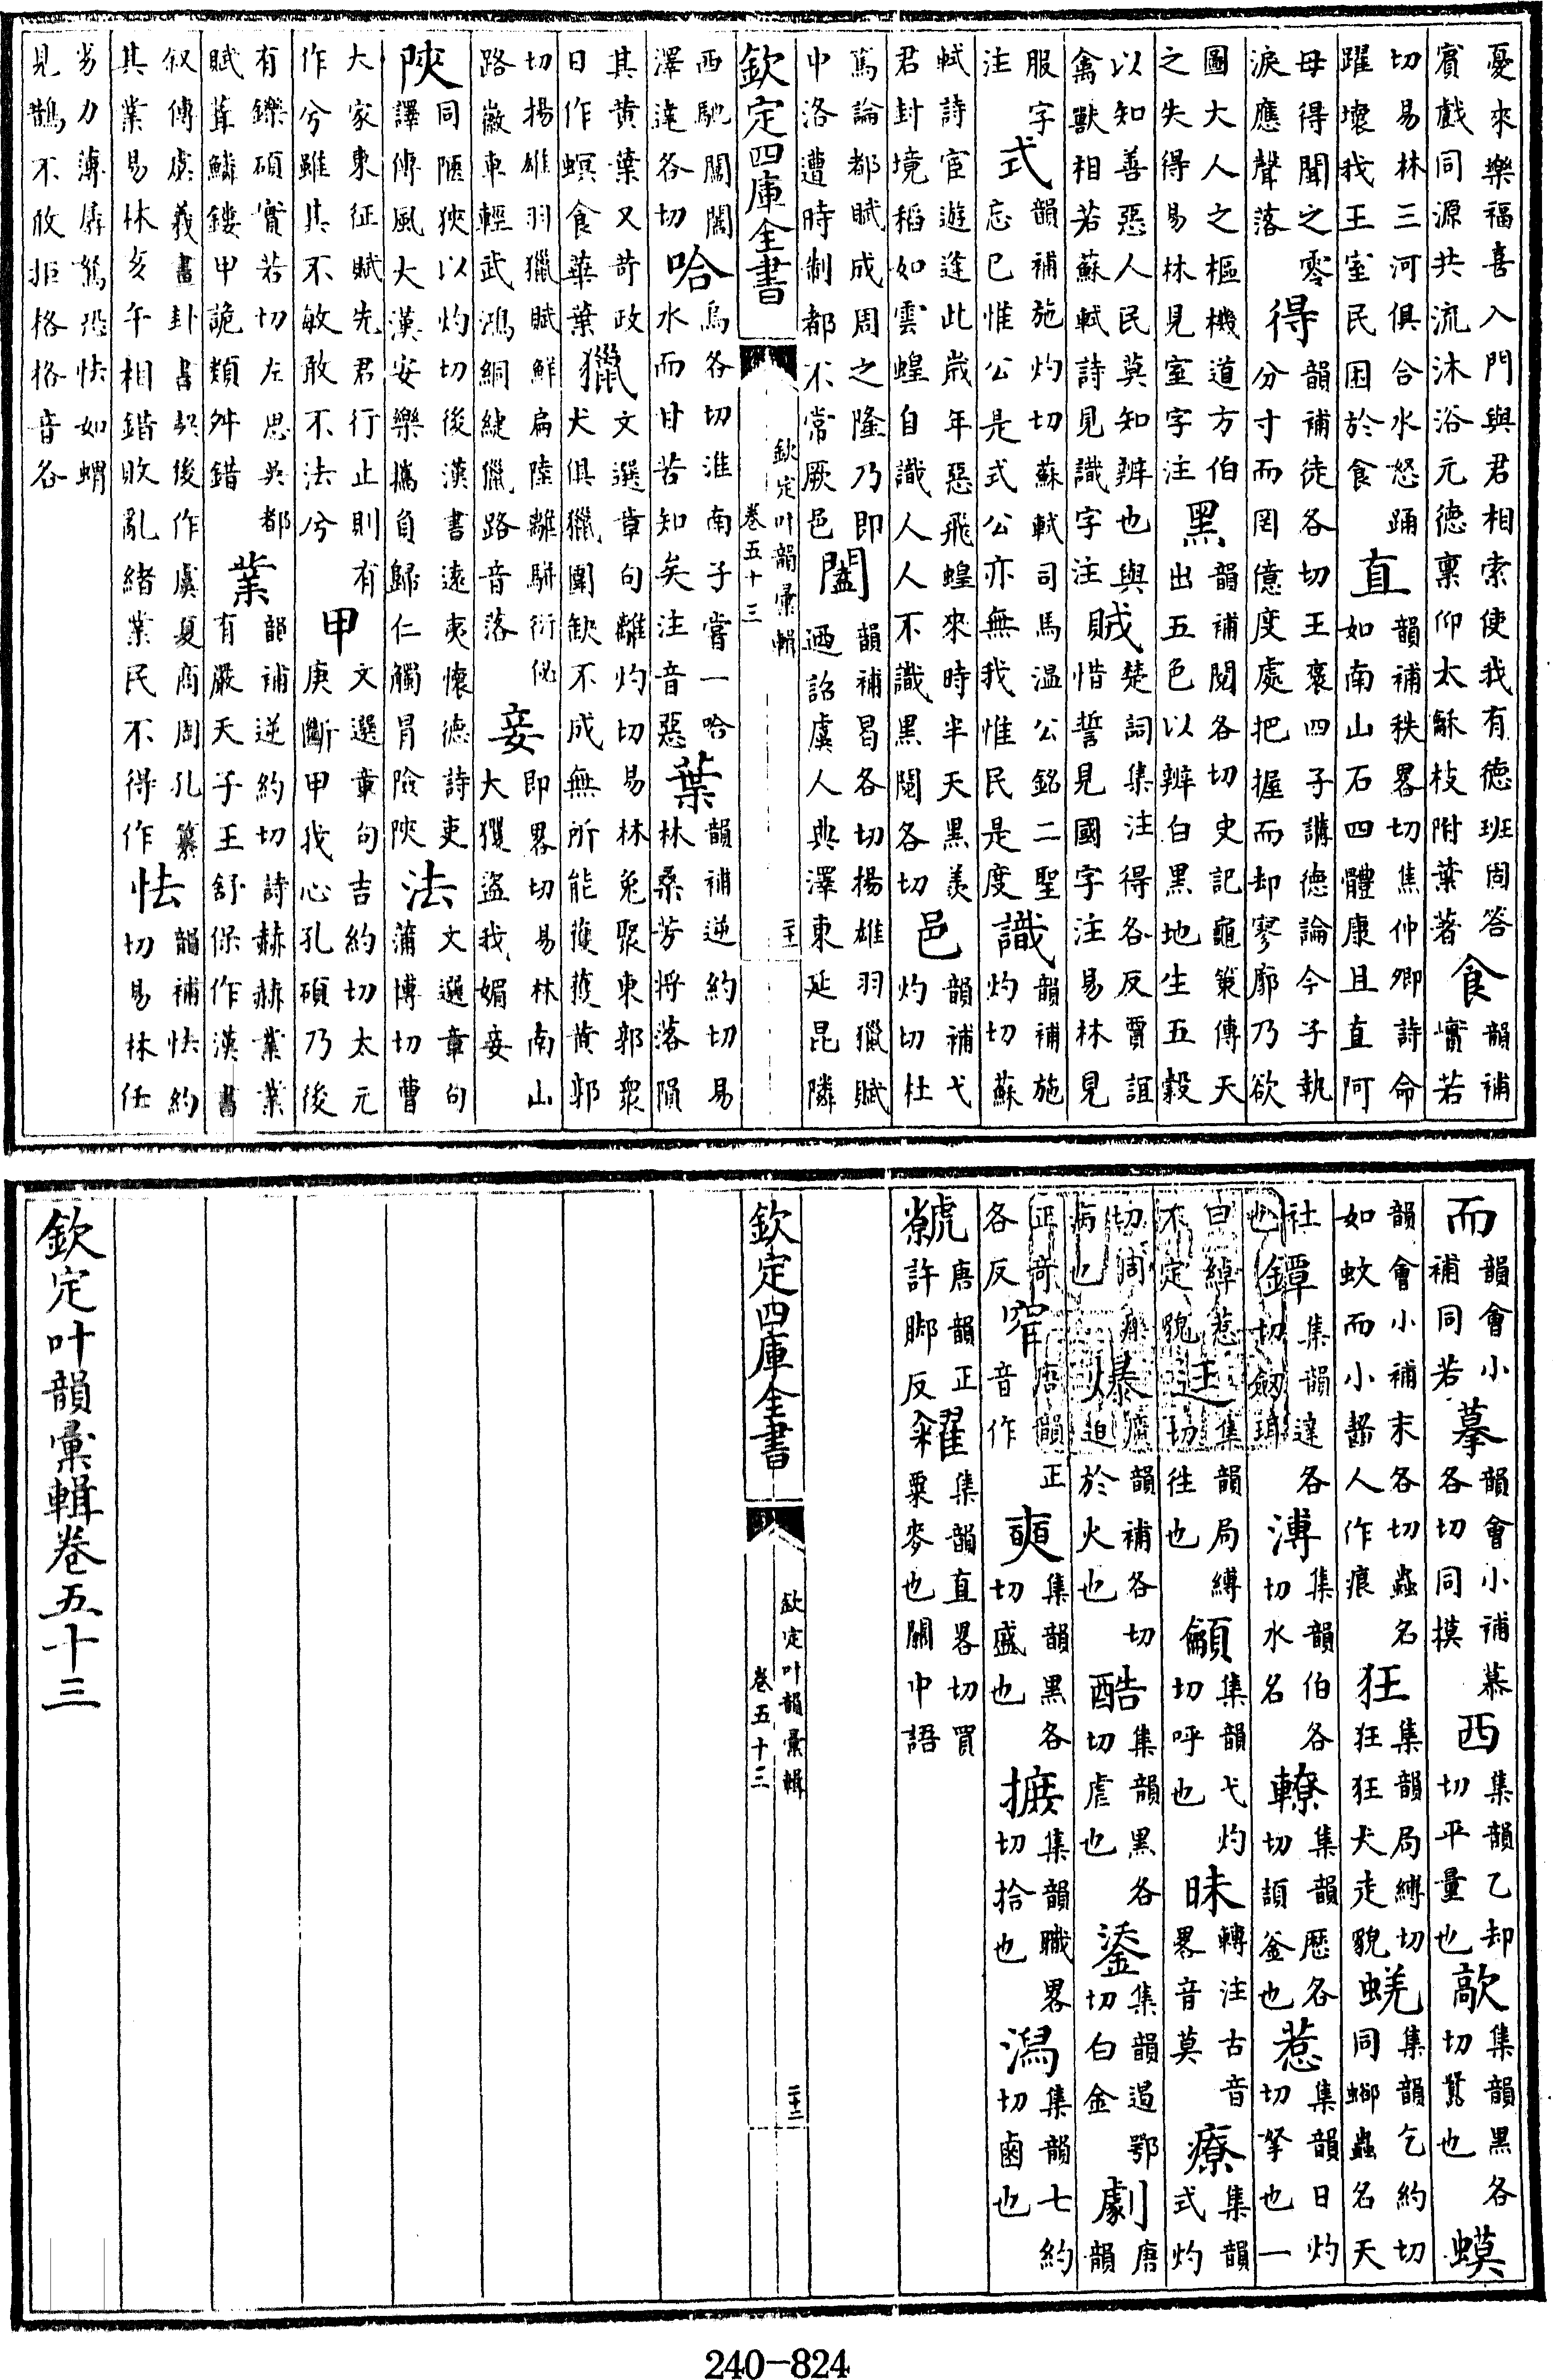 憂來樂福喜入門與君相索使我有德班固答
賓戲同源共流沐浴元德稟仰太龢枝附葉著
食
韻補
實若
切易林三河俱合水怒踊
躍壞我王室民困於食
直
韻補秩畧切焦仲卿詩命
如南山石四體康且直阿
母得聞之零
淚應聲落
得
韻補徒各切王褒四子講德論今子執
分寸而罔億度處把握而却寥廓乃欲
圖大人之樞機道方伯
之失得易林見室字注
黑
韻補閱各切史記龜策傳天
出五色以辨白黑地生五穀
以知善惡人民莫知辨也與
禽獸相若蘇軾詩見識字注
賊
楚詞集注得各反賈誼
惜誓見國字注易林見
服字
注
式
韻補施灼切蘇軾司馬溫公銘二聖
忘已惟公是式公亦無我惟民是度
識
韻補施
灼切蘇
軾詩宦遊逢此歲年惡飛蝗來時半天黑羨
君封境稻如雲蝗自識人人不識黑閱各切
邑
韻補弋
灼切杜
篤論都賦成周之隆乃即
中洛遭時制都不常厥邑
闔
韻補曷各切揚雄羽獵賦
迺詔虞人典澤東延昆隣
欽定四庫全書
欽定叶韻彙輯
卷五十三
二十一
西馳閶闔
澤達各切
哈
烏各切淮南子嘗一哈
水而甘苦知矣注音惡
葉
韻補逆約切易
林桑芳將落隕
其黄葉又苛政
日作螟食華葉
獵
文選章句離灼切易林兔聚東郭衆
犬俱獵圍缺不成無所能獲獲黄郭
切揚雄羽獵賦鮮扁陸離駢衍佖
路徽車輕武鴻絧緁獵路音落
妾
即畧切易林南山
大玃盜我媚妾
陝
同陿狹以灼切後漢書遠夷懷德詩吏
譯傳風大漢安樂攜負歸仁觸冒險陝
法
文選章句
蒲博切曹
大家東征賦先君行止則有
作兮雖其不敏敢不法兮
甲
文選章句吉約切太元
庚斷甲我心孔碩乃後
有鑠碩實若切左思吳都
賦葺鱗鏤甲詭類舛錯
業
韻補逆約切詩赫赫業業
有嚴天子王舒保作漢書
叙傳虙羲畫卦書契後作虞夏商周孔纂
其業易林亥午相錯敗亂緒業民不得作
怯
韻補怯約
切易林任
劣力薄孱駑恐怯如蝟
見鵲不敢拒格格音各
而
韻會小
補同若
摹
韻會小補慕
各切同摸
西
集韻乙却
切平量也
歊
集韻黑各
切驚也
蟆
韻會小補末各切蟲名
如蚊而小齧人作痕
狂
集韻局縛切
狂狂犬走貌
蜣
集韻乞約切
同蝍蟲名天
社
也
鐔
集韻達各
切劔珥
溥
集韻伯各
切水名
轑
集韻歷各
切頡釜也
惹
集韻日灼
切拏也一
曰綽惹
不定貌
迋
集韻局縛
切往也
籲
集韻弋灼
切呼也
昧
轉注古音
畧音莫
療
集韻
式灼
切周
病也
爆
廣韻補各切
迫於火也
酷
集韻黑各
切虐也
鋈
集韻遏鄂
切白金
劇
唐
韻
正奇
各反
穽
唐韻正
音作
奭
集韻黑各
切盛也
摭
集韻職畧
切拾也
潟
集韻七約
切鹵也
唐韻正
許脚反
糴
集韻直畧切買
粟麥也關中語
欽定四庫全書
欽定叶韻彙輯
卷五十三
二十二
欽定叶韻彙輯卷五十三
240-824